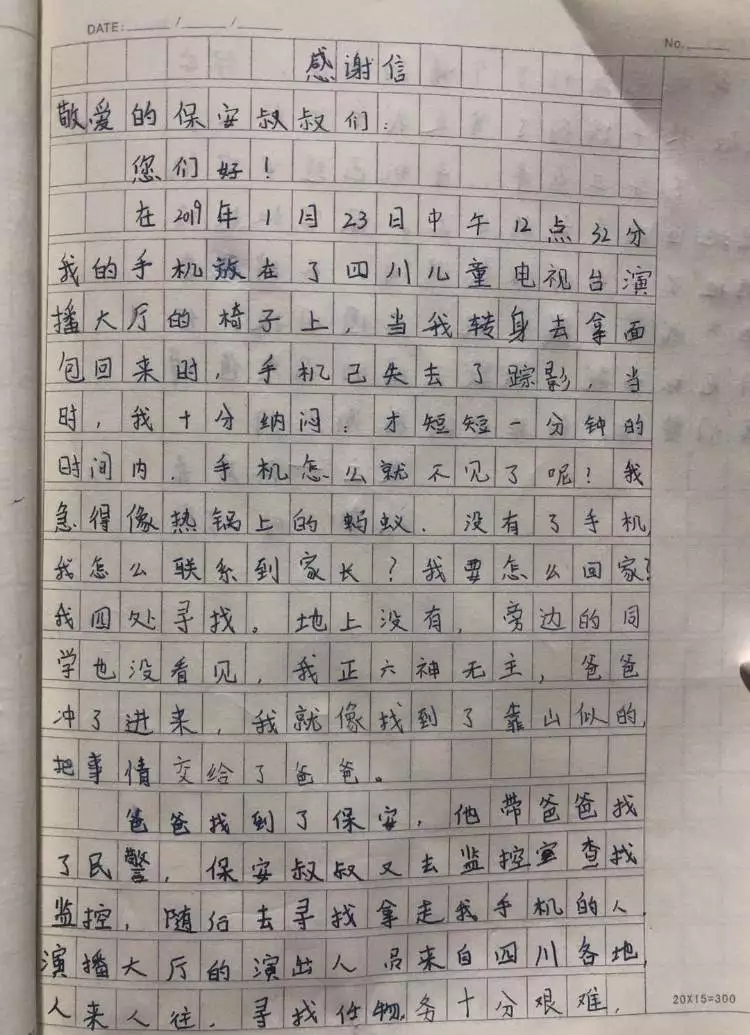 DATE: / /
No.
感谢信
敬爱的保安叔叔们：
您们好！
在2019年1月23日中午12点32分
我的手机放在了四川儿童电视台演
播大厅的椅子上，当我转身去拿面
包回来时，手机已失去了踪影，当
时，我十分纳闷：才短短一分钟的
时间内，手机怎么就不见了呢？我
急得像热锅上的蚂蚁．没有了手机，
我怎么联系到家长？我要怎么回家？
我四处寻找。地上没有，旁边的同
学也没看见，我正六神无主，爸爸
冲了进来，我就像找到了靠山似的，
把事情交给了爸爸。
爸爸找到了保安，他带爸爸找
了民警，保安叔叔又去监控室查找
监控，随后去寻找拿走我手机的人，
演播大厅的演出人员来自四川各地，
人来人往，寻找任务十分艰难，
20X15=300